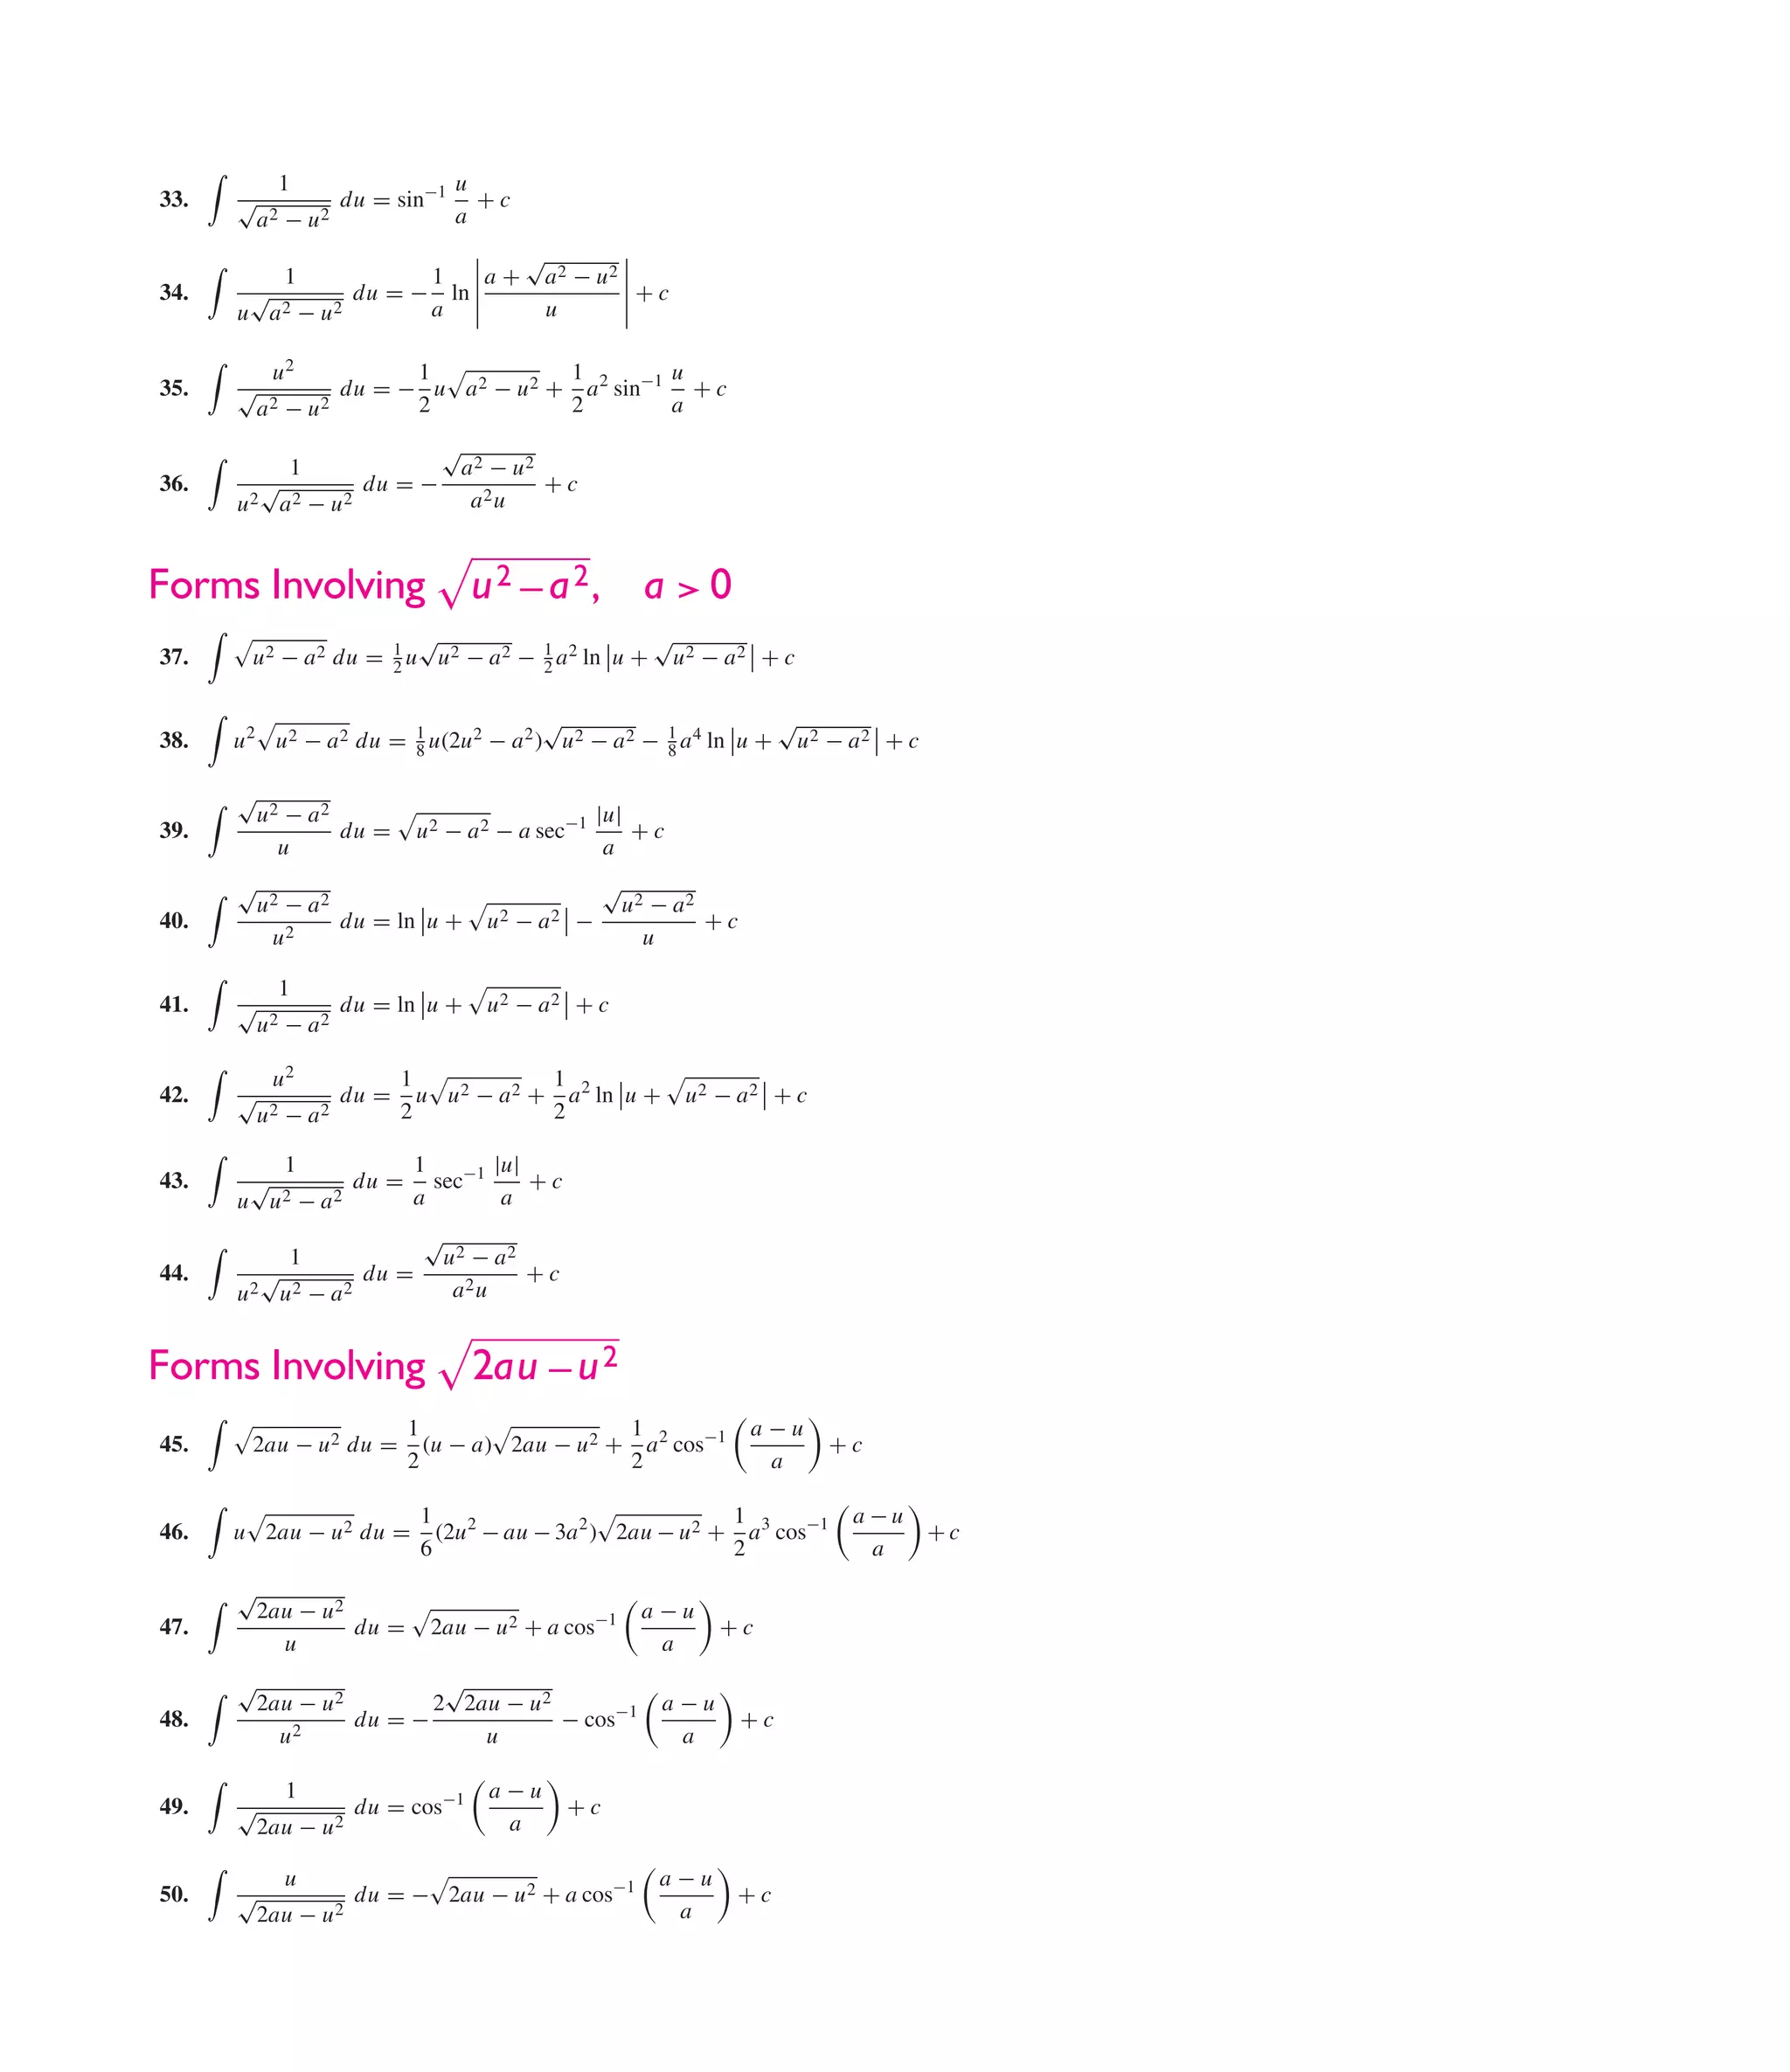 33. ∫ 1/√(a² − u²) du = sin⁻¹ u/a + c
34. ∫ 1/(u√(a² − u²)) du = −1/a ln |(a + √(a² − u²))/u| + c
35. ∫ u²/√(a² − u²) du = −1/2 u√(a² − u²) + 1/2 a² sin⁻¹ u/a + c
36. ∫ 1/(u²√(a² − u²)) du = −√(a² − u²)/(a²u) + c
Forms Involving √(u² − a²), a > 0
37. ∫ √(u² − a²) du = 1/2 u√(u² − a²) − 1/2 a² ln |u + √(u² − a²)| + c
38. ∫ u²√(u² − a²) du = 1/8 u(2u² − a²)√(u² − a²) − 1/8 a⁴ ln |u + √(u² − a²)| + c
39. ∫ √(u² − a²)/u du = √(u² − a²) − a sec⁻¹ |u|/a + c
40. ∫ √(u² − a²)/u² du = ln |u + √(u² − a²)| − √(u² − a²)/u + c
41. ∫ 1/√(u² − a²) du = ln |u + √(u² − a²)| + c
42. ∫ u²/√(u² − a²) du = 1/2 u√(u² − a²) + 1/2 a² ln |u + √(u² − a²)| + c
43. ∫ 1/(u√(u² − a²)) du = 1/a sec⁻¹ |u|/a + c
44. ∫ 1/(u²√(u² − a²)) du = √(u² − a²)/(a²u) + c
Forms Involving √(2au − u²)
45. ∫ √(2au − u²) du = 1/2 (u − a)√(2au − u²) + 1/2 a² cos⁻¹ ((a − u)/a) + c
46. ∫ u√(2au − u²) du = 1/6 (2u² − au − 3a²)√(2au − u²) + 1/2 a³ cos⁻¹ ((a − u)/a) + c
47. ∫ √(2au − u²)/u du = √(2au − u²) + a cos⁻¹ ((a − u)/a) + c
48. ∫ √(2au − u²)/u² du = −2√(2au − u²)/u − cos⁻¹ ((a − u)/a) + c
49. ∫ 1/√(2au − u²) du = cos⁻¹ ((a − u)/a) + c
50. ∫ u/√(2au − u²) du = −√(2au − u²) + a cos⁻¹ ((a − u)/a) + c